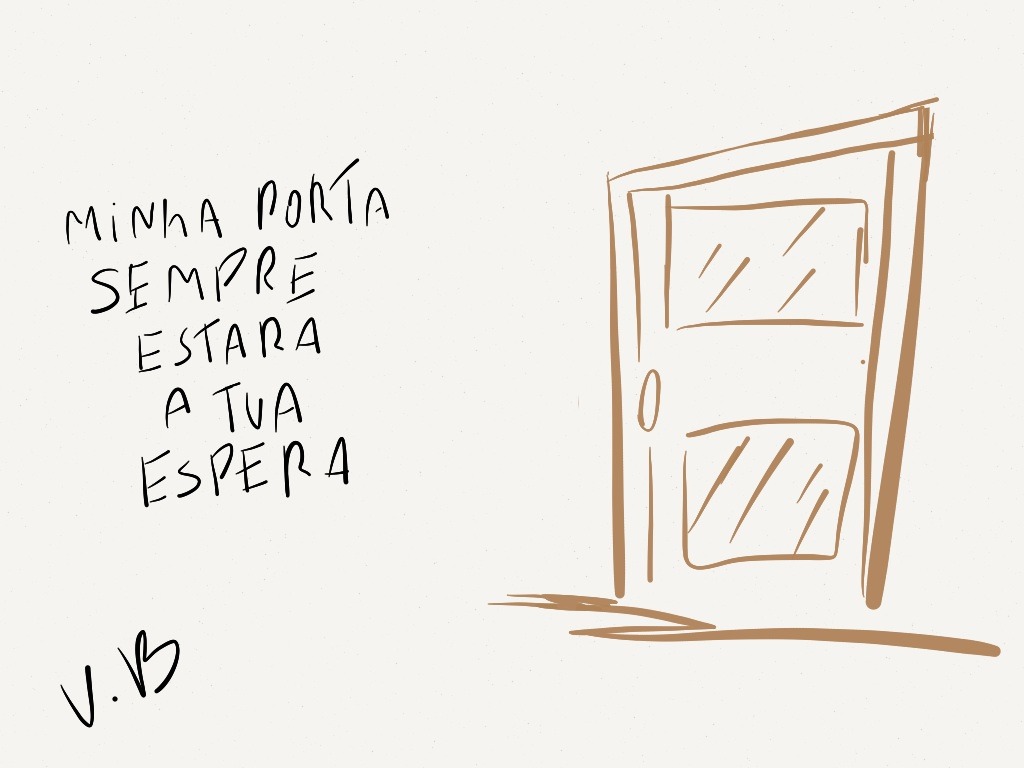 MiNhA PORTA
SEMPRE
ESTARA
A TUA
ESPERA
V.B